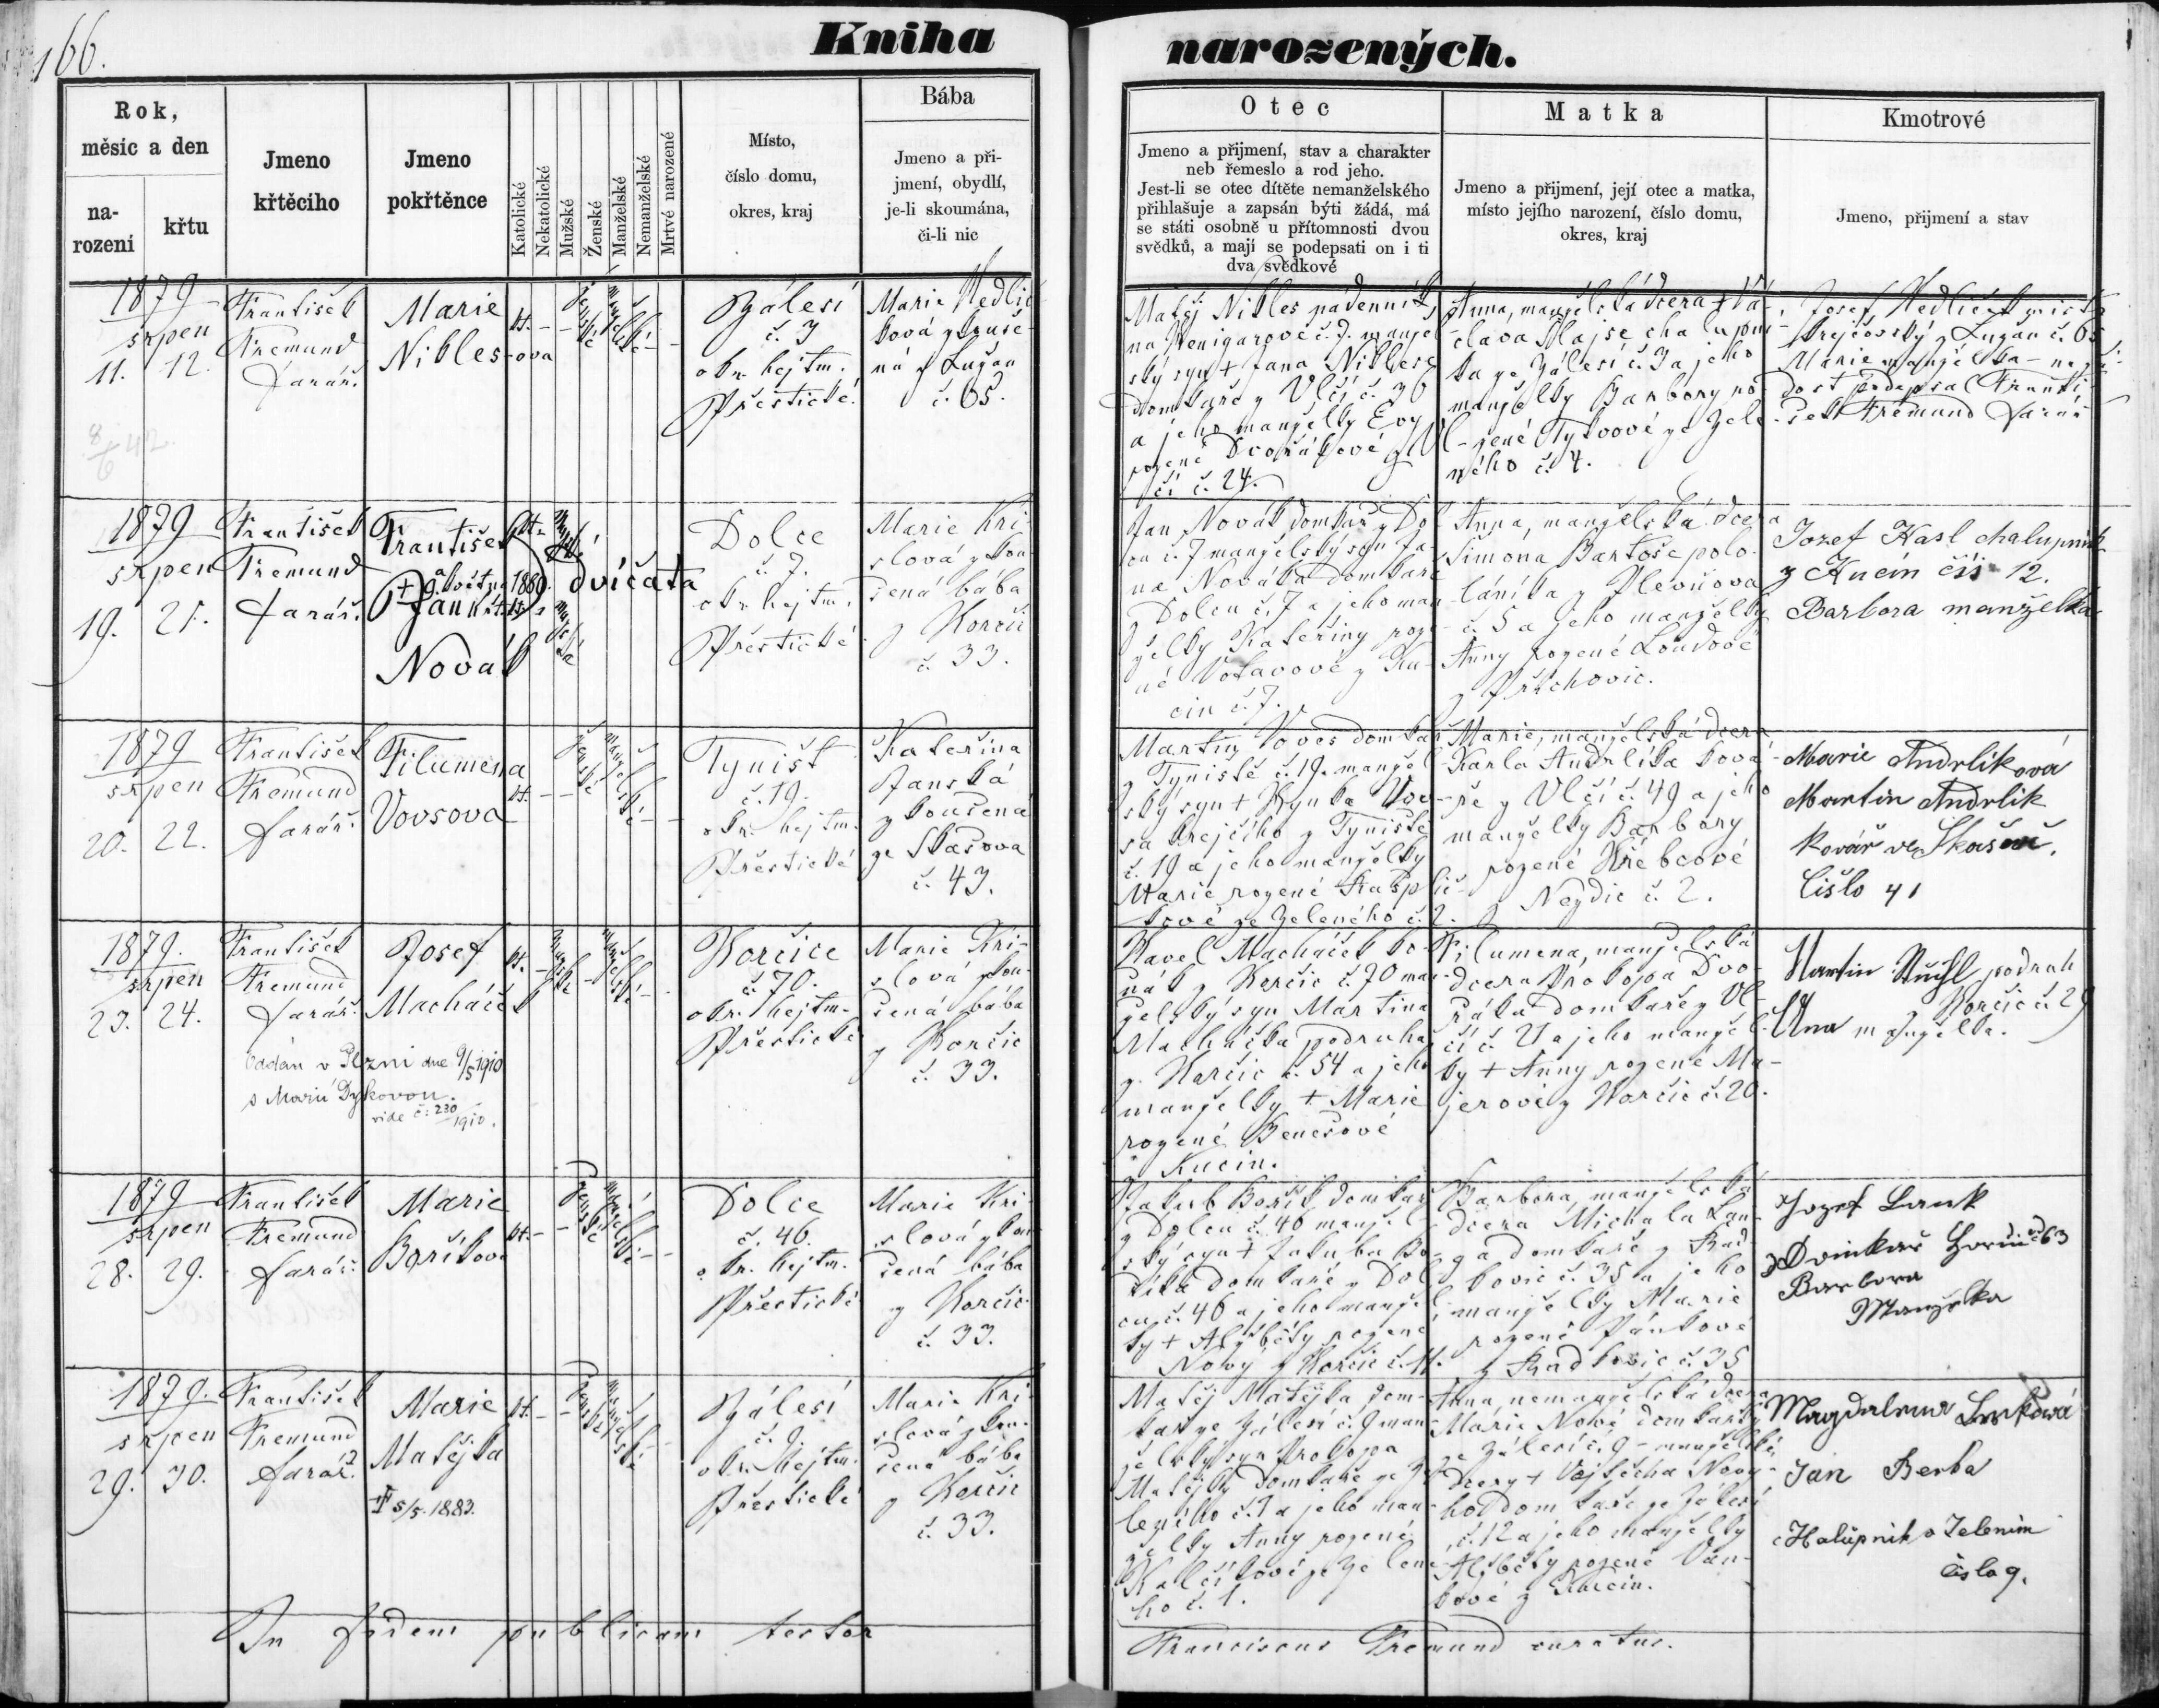 166.
Kniha narozených.
Rok, měsíc a den
narození
křtu
Jmeno křtěcího
Jmeno pokřtěnce
Katolické
Nekatolické
Mužské
Ženské
Manželské
Nemanželské
Mrtvé narozené
Místo,
číslo domu,
okres, kraj
Bába
Jmeno a při-
jmení, obydlí,
je-li skoumána,
či-li nic
Otec
Jmeno a přijmení, stav a charakter
neb řemeslo a rod jeho.
Jest-li se otec dítěte nemanželského
přihlašuje a zapsán býti žádá, má
se státi osobně u přítomnosti dvou
svědků, a mají se podepsati on i ti
dva svědkové
Matka
Jmeno a přijmení, její otec a matka,
místo jejího narození, číslo domu,
okres, kraj
Kmotrové
Jmeno, přijmení a stav
1879
srpen
11. 12.
František
Fremund
farář.
Marie
Nikles-ova
kt.
ženské
manželské
Zálesí
č. 3
okr. hejtm.
Přestické.
Marie Nedlič-
ková zkouše-
ná z Lužan
č. 65.
Matěj Nikles nádenník
ský syn + Jana Niklese
domkaře z Vlčí č. 36
a jeho manželky Evy
rozené Dvořákové z Vl-
čí č. 24.
Anna, manželská dcera + Vá-
clava Majse, chalupní-
ka ze Zálesí č. 3 a jeho
manželky Barbory ro-
zené Tykvové ze Zele-
ného č. 4.
Josef Nedliček mistr
krejčovský z Lužan č. 65
Marie manželka - na žá-
dost podepsal Franti-
šek Fremund farář
8/6 42.
1879
srpen
19. 21.
František
Fremund
farář.
František
+ 9. května 1880.
Jan
Novák
kt.
dvíčata
Dolce
č. 7.
okr. hejtm.
Přestické
Marie Kri-
slová zkou-
šená bába
z Horčic
č. 33.
Jan Novák domkář z Dol-
ců č. 7 manželský syn Ja-
na Nováka domkaře
z Dolců č. 7 a jeho man-
želky Kateřiny roze-
né Votavové z Ku-
cin č. 7.
Anna, manželská dcera
Šimona Bartoše polo-
láníka z Plevňova
č. 5 a jeho manželky
Anny rozené Loudové
z Příchovic.
Jozef Kasl chalupník
z Kucín čís 12.
Barbora manželka
1879
srpen
20. 22.
František
Fremund
farář.
Filumena
Vovsova
kt.
ženské
manželské
Tyništ
č. 19.
okr. hejtm.
Přestické
Kateřina
Janská
zkoušená
ze Skašova
č. 43.
Martin Voves domkář
z Tyniště č. 19. manžel-
ský syn + Hynka Vov-
sa krejčího z Tyniště
č. 19 a jeho manželky
Marie rozené Kašpl-
kové ze Zeleného č. 2.
Marie, manželská dcera
Karla Andrlíka ková-
ře z Vlčí č. 49 a jeho
manželky Barbory
rozené Hřebcové
z Nezdic č. 2.
Marie Andrliková
Martin Andrlik
kovář ve Skašově.
Čišlo 41
1879.
srpen
23. 24.
František
Fremund
farář.
Josef
Macháček
kt.
mužské
manželské
Horčice
č. 70.
okr. hejtm.
Přestické
Marie Kri-
slová zkou-
šená bába
z Horčic
č. 33.
Oddán v Plzni dne 9/5 1910
s Marií Dykovou.
vide č: 230/1910.
Pavel Macháček ko-
vář z Horčic č. 70 man-
želský syn Martina
Macháčka podruha
z Horčic č. 54 a jeho
manželky + Marie
rozené Benešové
z Kucin.
Filumena, manželská
dcera Prokopa Dvo-
řáka domkaře z Vl-
čí č. 21 a jeho manžel-
ky + Anny rozené Ma-
jerové z Horčic č. 20.
Martin podruh
z Horčic č. 29
Anna manželka.
1879
srpen
28. 29.
František
Fremund
farář.
Marie
Boříkova
kt.
ženské
manželské
Dolce
č. 46.
okr. hejtm.
Přestické
Marie Kri-
slová zkou-
šená bába
z Horčic
č. 33.
Jakub Bořík domkář
z Dolců č. 46 manžel-
ský syn + Jakuba Bo-
říka domkaře z Dol-
ců č. 46 a jeho manžel-
ky + Alžběty rozené
Nový z Horčic č. 11.
Barbora, manželská
dcera Michala Lan-
ga domkaře z Rad-
kovic č. 35 a jeho
manželky Marie
rozené Pánkové
z Radkovic č. 35
Jozef
Domkář č 63
Barbora
Manželka
1879.
srpen
29. 30.
František
Fremund
farář.
Marie
Matějka
+ 5/5. 1883.
kt.
ženské
manželské
Zálesí
č. 9.
okr. hejtm.
Přestické
Marie Kri-
slová zkou-
šená bába
z Horčic
č. 33.
Matěj Matějka dom-
kář ze Zálesí č. 9 man-
želský syn Prokopa
Matějky domkaře ze Ze-
leného č. 1 a jeho man-
želky Anny rozené
ze Zelené-
ho č. 1.
Anna, nemanželská dcera
Marie Nové domkářky
ze Zálesí č. 9 - manželské
dcery + Vojtěcha Nový-
ho domkaře ze Zálesí
č. 12 a jeho manželky
Alžběty rozené Van-
kové z Kucin.
Magdalena
Jan Berka
Halupnik z Zelenim
čislo 9.
In fidem publicam testor
Franciscus Fremund curatus.